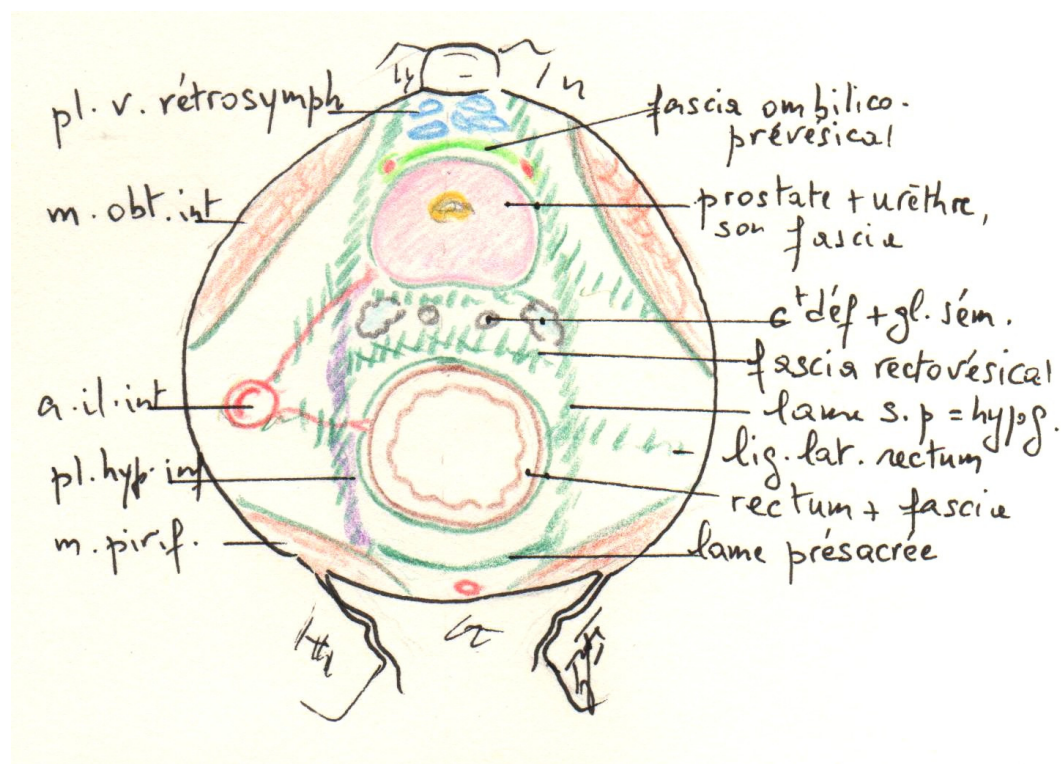 pl. v. rétrosymph
m. obt. int
a. il. int
pl. hyp. inf
m. pirif.
fascia ombilico-
prévésical
prostate + urèthre,
son fascia
ct déf + gl. sém.
fascia rectovésical
lame s.p = hypog.
lig. lat. rectum
rectum + fascia
lame présacrée